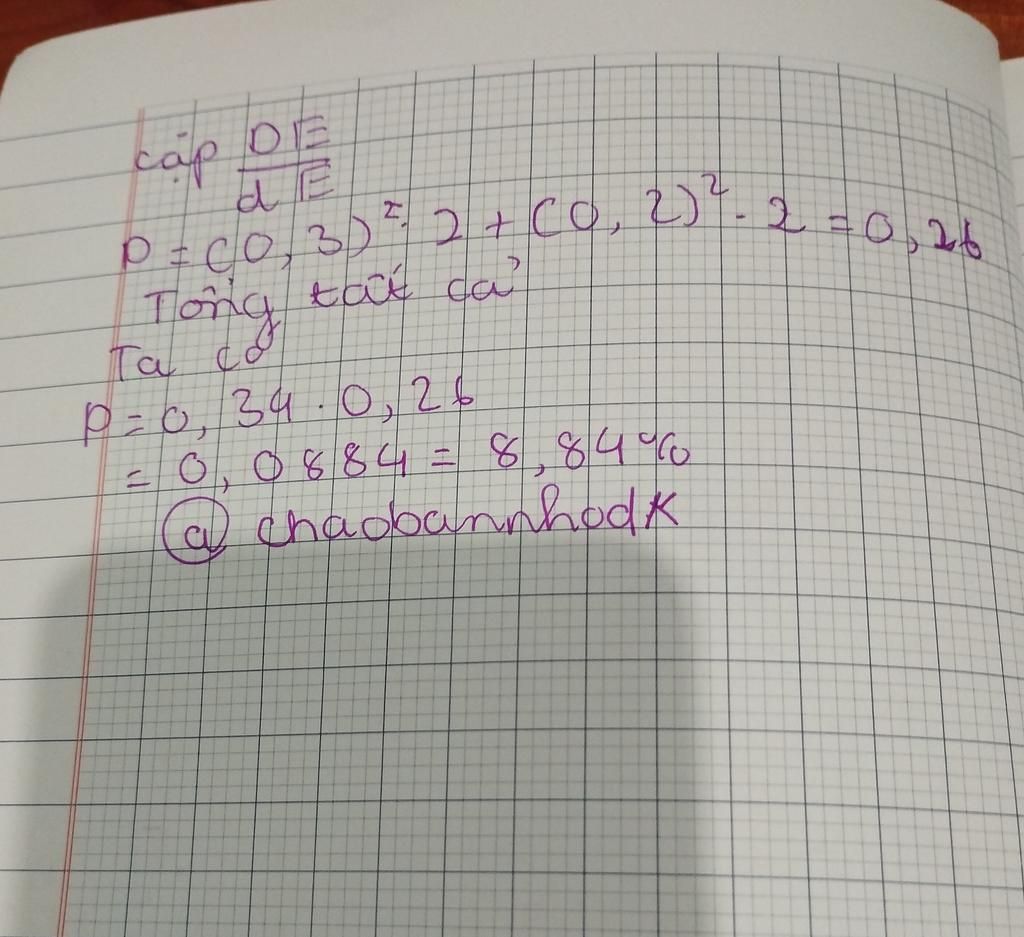 cặp DE
dE
P = (0,3)². 2 + (0,2)² . 2 = 0,26
Tổng tất cả
Ta có
P = 0,34 . 0,26
= 0,0884 = 8,84%
@ chaobannhodk